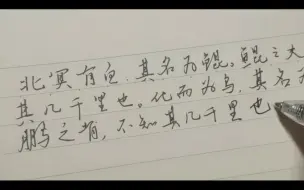 北冥有鱼,其名为鲲。鲲之大
其几千里也。化而为鸟,其名为
鹏之背,不知其几千里也